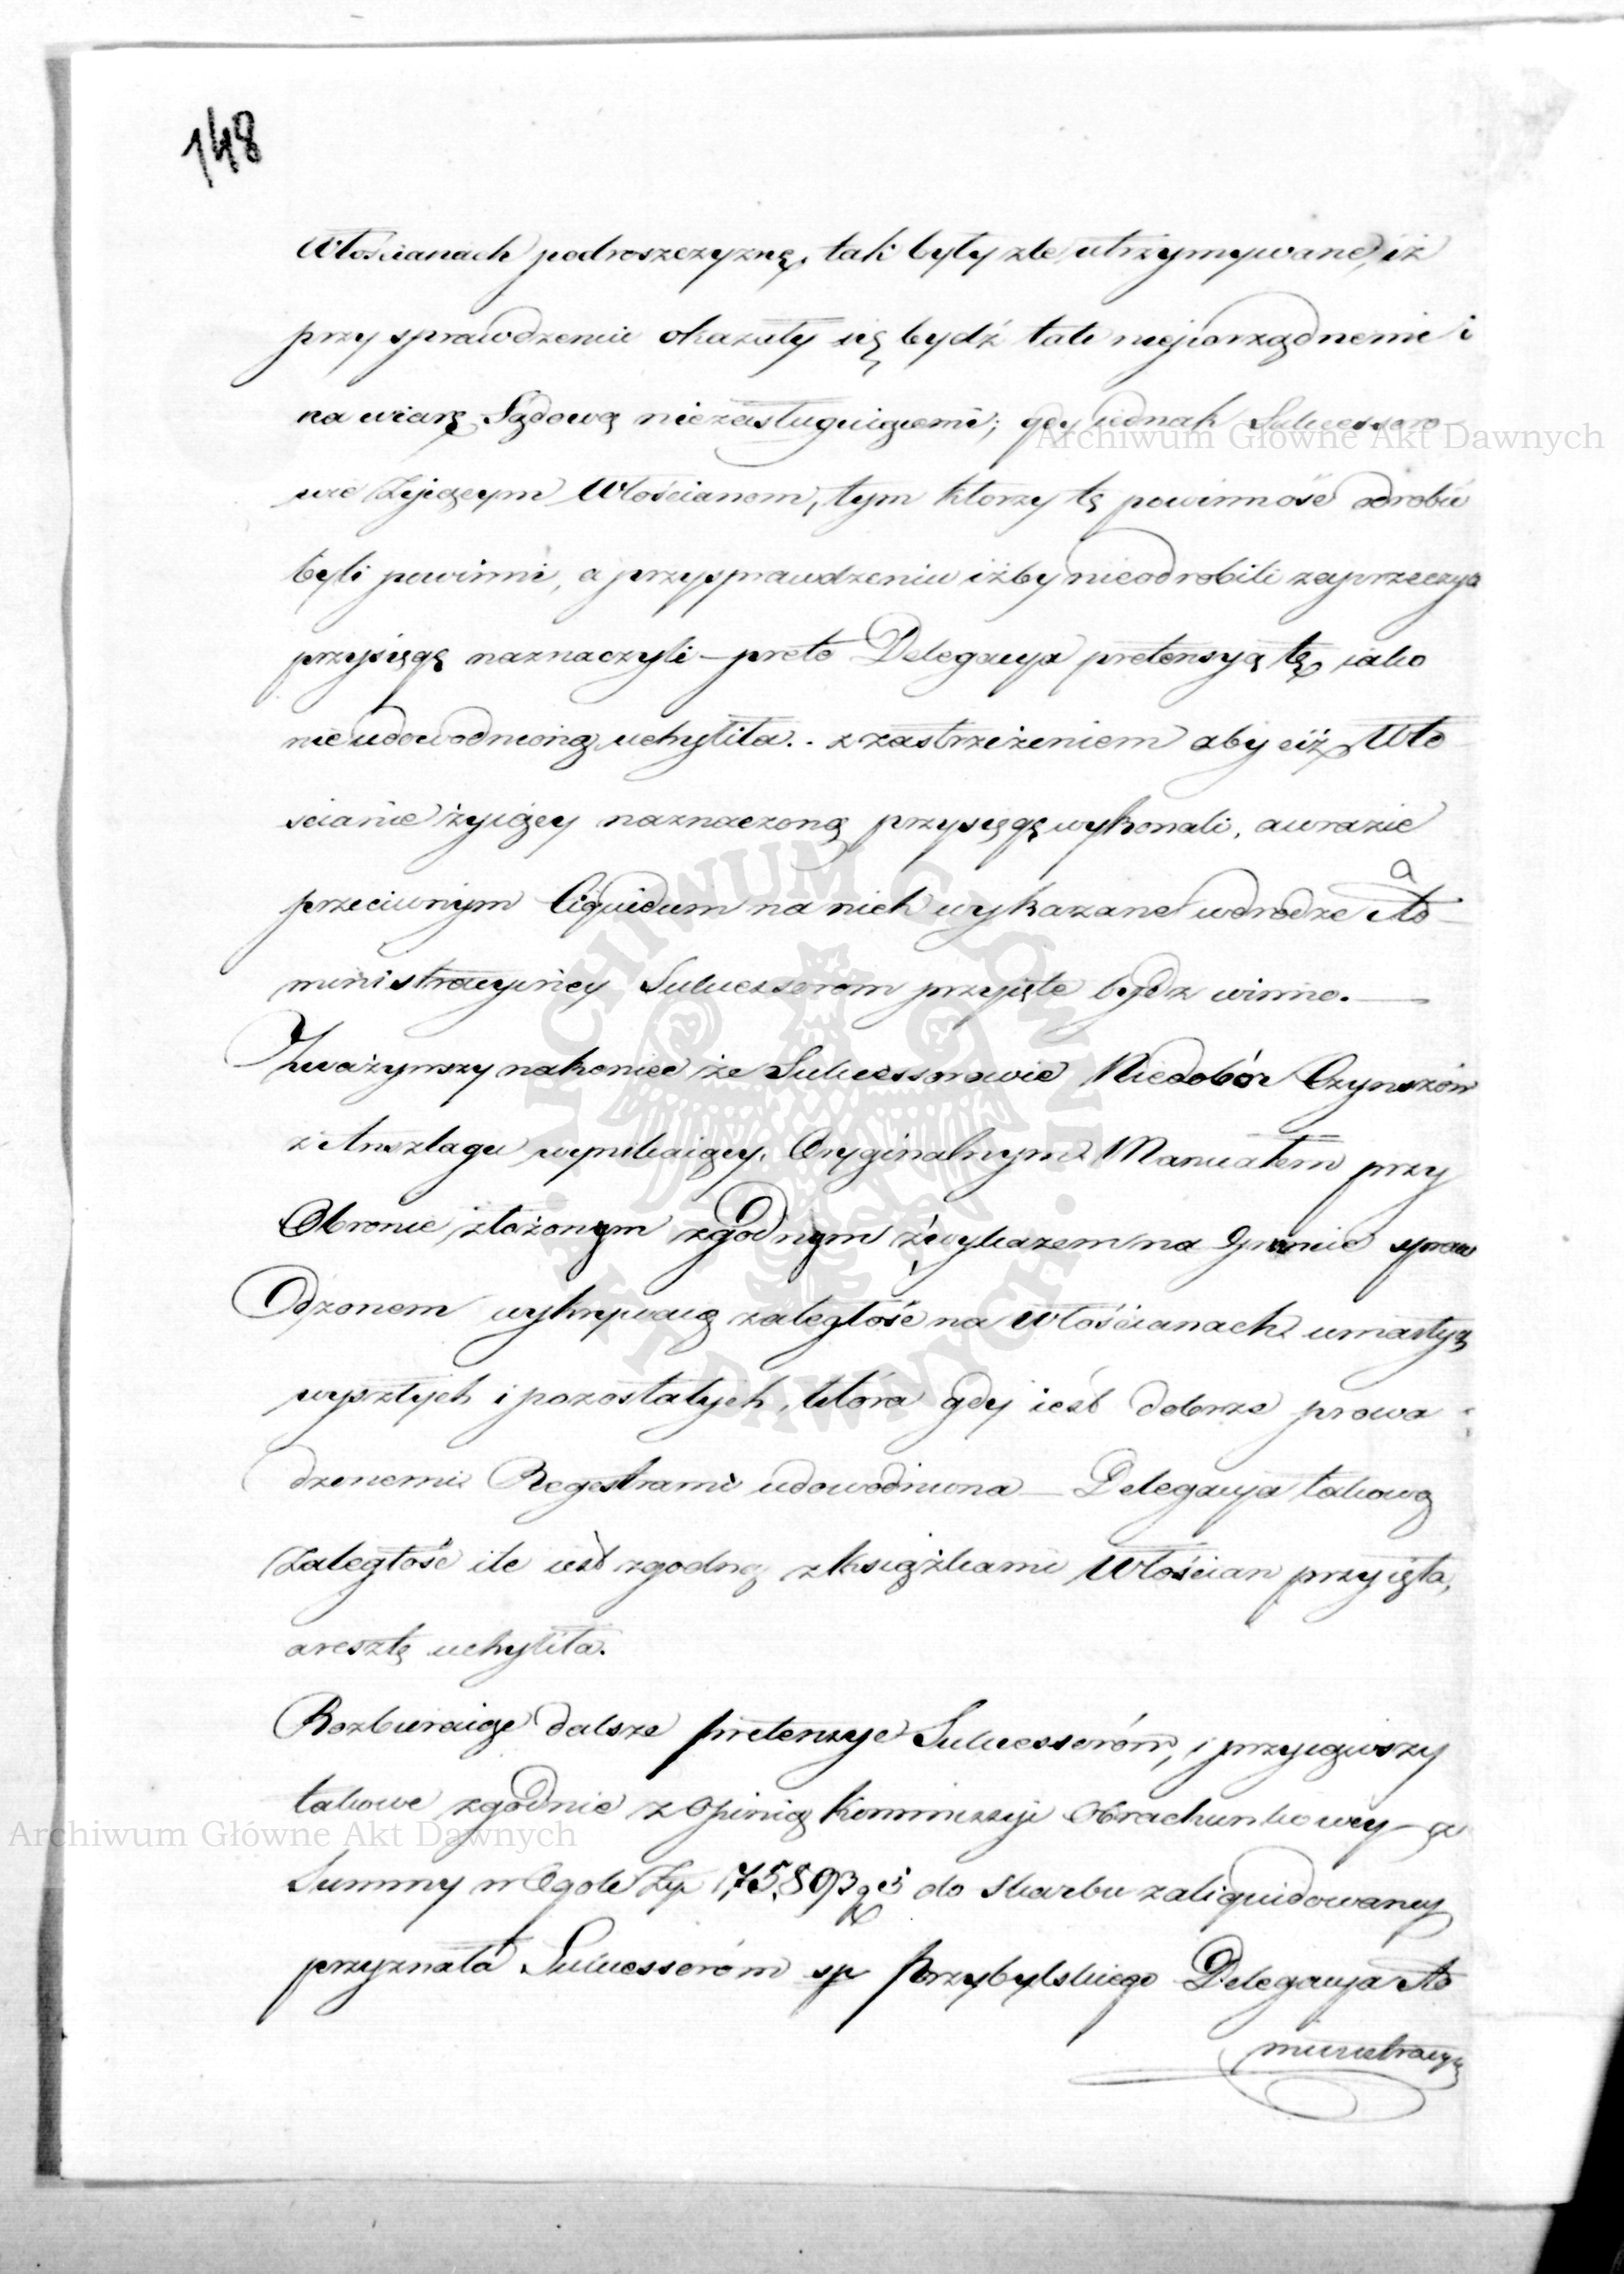 148
Włościanach podroszczyznę, tak były zle utrzymywane, iż
przy sprawdzeniu okazały się bydź tak nieporządnemi i
na wiarę Sądową niezasługuiącemi; gdy iednak Sukcessoro-
wie żyiącym Włościanom, tym ktorzy tę powinność odrobić
byli powinni, a przy sprawdzeniu iżby nieodrobili zaprzeczyli
przysięgę naznaczyli – preto Delegacya pretensyą tę, iako
nieudowodnioną uchyliła. - z zastrzeżeniem aby ciż Wło-
ścianie żyiący naznaczoną przysięgę wykonali, a w razie
przeciwnym liquidum na nich wykazane w drodze Ad-
ministracyiney Sukcessorom przyięte bydz winno. —
Zważywszy nakoniec że Sukcessorowie Niedobór Czynszów
z Anszlagu wynikaiący, Oryginalnym Manuałem przy
Obronie złożonym zgodnym z wykazem na Gruncie spraw
dzonem wykrywaią zaległość na Włościanach zmarłych
wyszłych i pozostałych, która gdy iest dobrze prowa-
dzonemi Regestrami udowodniona – Delegacya takową
Zaległość ile iest zgodną z książkami Włościan przyięła,
a resztę uchyliła.
Rozbieraiąc dalsze pretensye Sukcessorów, i przyiąwszy
takowe zgodnie z Opinią Kommissyi Obrachunkowey – z
Summy w Ogole Złp 175,803 g 5 do skarbu zaliquidowaney
przyznała Sukcessoróm sp Przybylskiego Delegacya Ad
ministracyi
Archiwum Główne Akt Dawnych
Archiwum Główne Akt Dawnych
ARCHIWUM GŁÓWNE AKT DAWNYCH